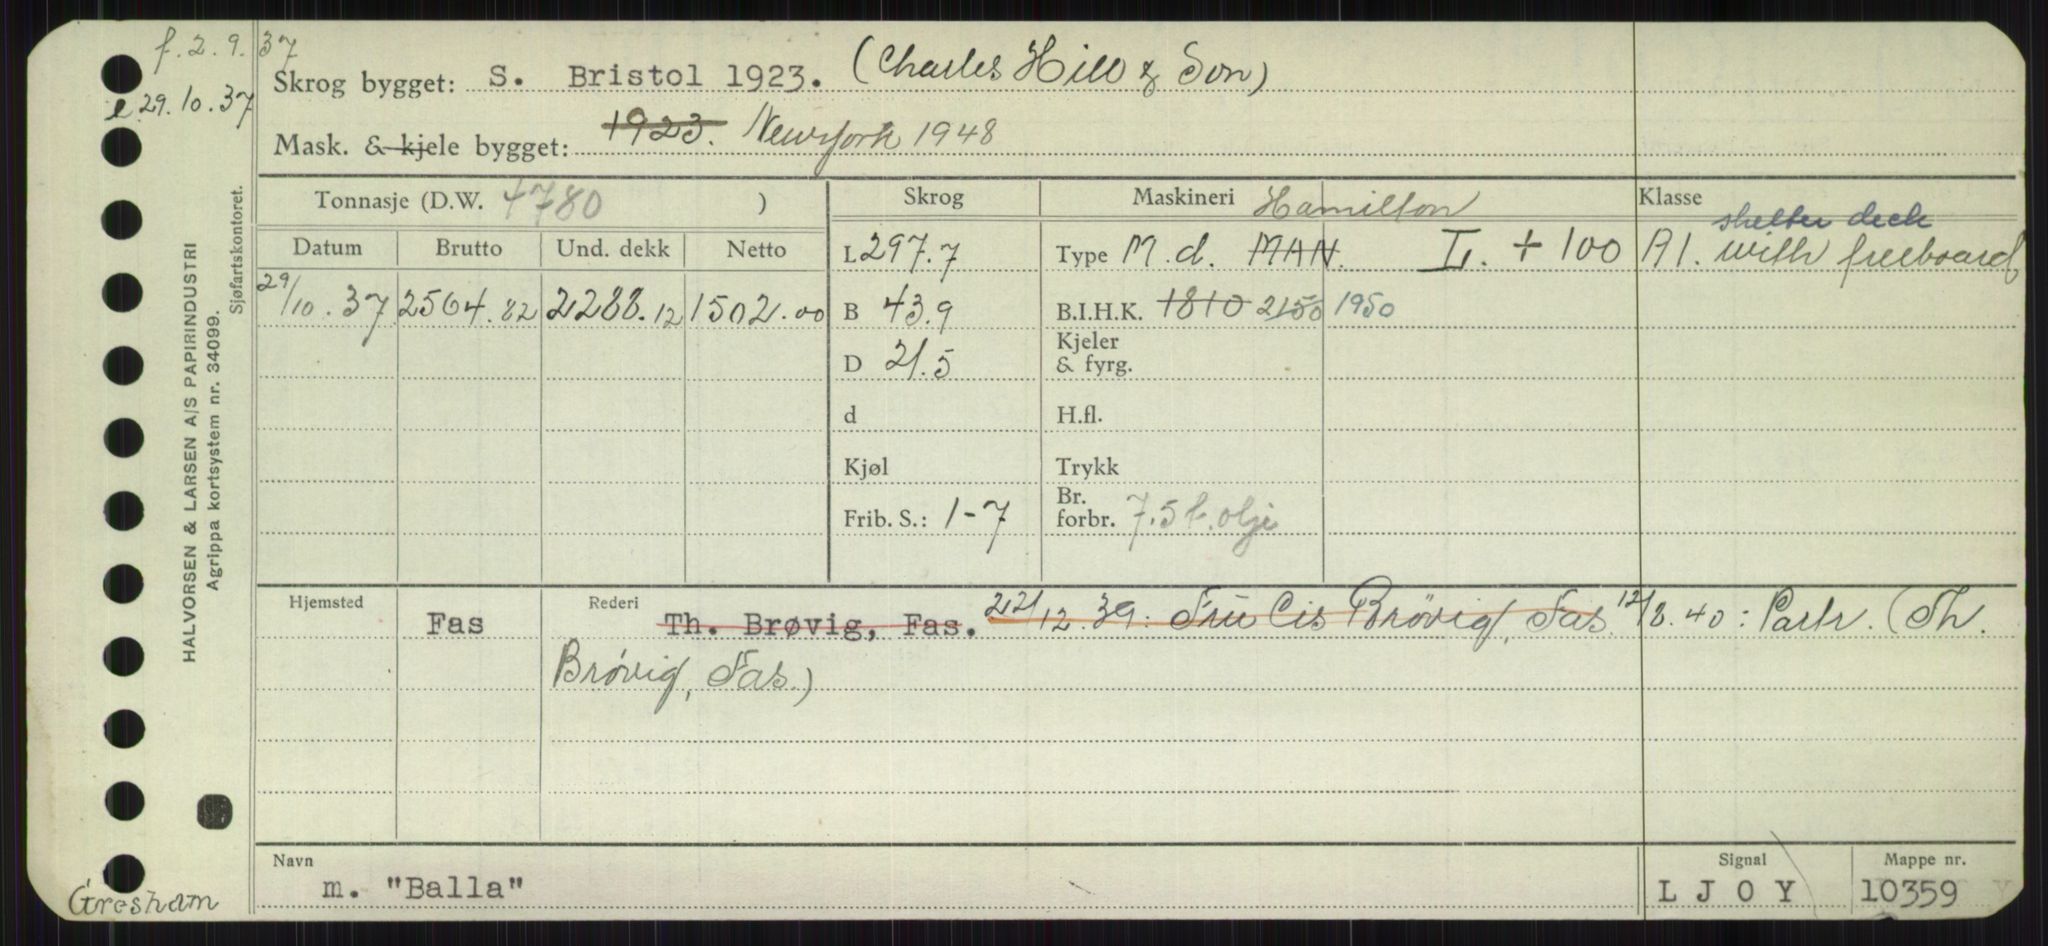 f. 2. 9. 37
e. 29. 10. 37
Skrog bygget: S. Bristol 1923. (Charles Hill & Son)
Mask. & kjele bygget: 1923. Newyork 1948
Tonnasje (D.W. 4780 )
Datum Brutto Und. dekk Netto
29/10. 37 2564.82 2288.12 1502.00
Skrog
L 297.7
B 43.9
D 21.5
d
Kjøl
Frib. S.: 1-7
Maskineri Hamilton
Type M. d. MAN.
B.I.H.K. 1810 2150 1950
Kjeler
& fyrg.
H.fl.
Trykk
Br.
forbr. 7.5 t. olje
Klasse
shelter deck
L. + 100 A1. with freeboard
Hjemsted
Fas
Rederi
Th. Brøvig, Fas. 22/12. 39: Fru Cis Brøvig, Fas. 12/8. 40: Partr. (Th.
Brøvig, Fas.)
Navn
m. "Balla"
Signal
L J O Y
Mappe nr.
10359
HALVORSEN & LARSEN A/S PAPIRINDUSTRI
Agrippa kortsystem nr. 34099.
Sjøfartskontoret.
Gresham